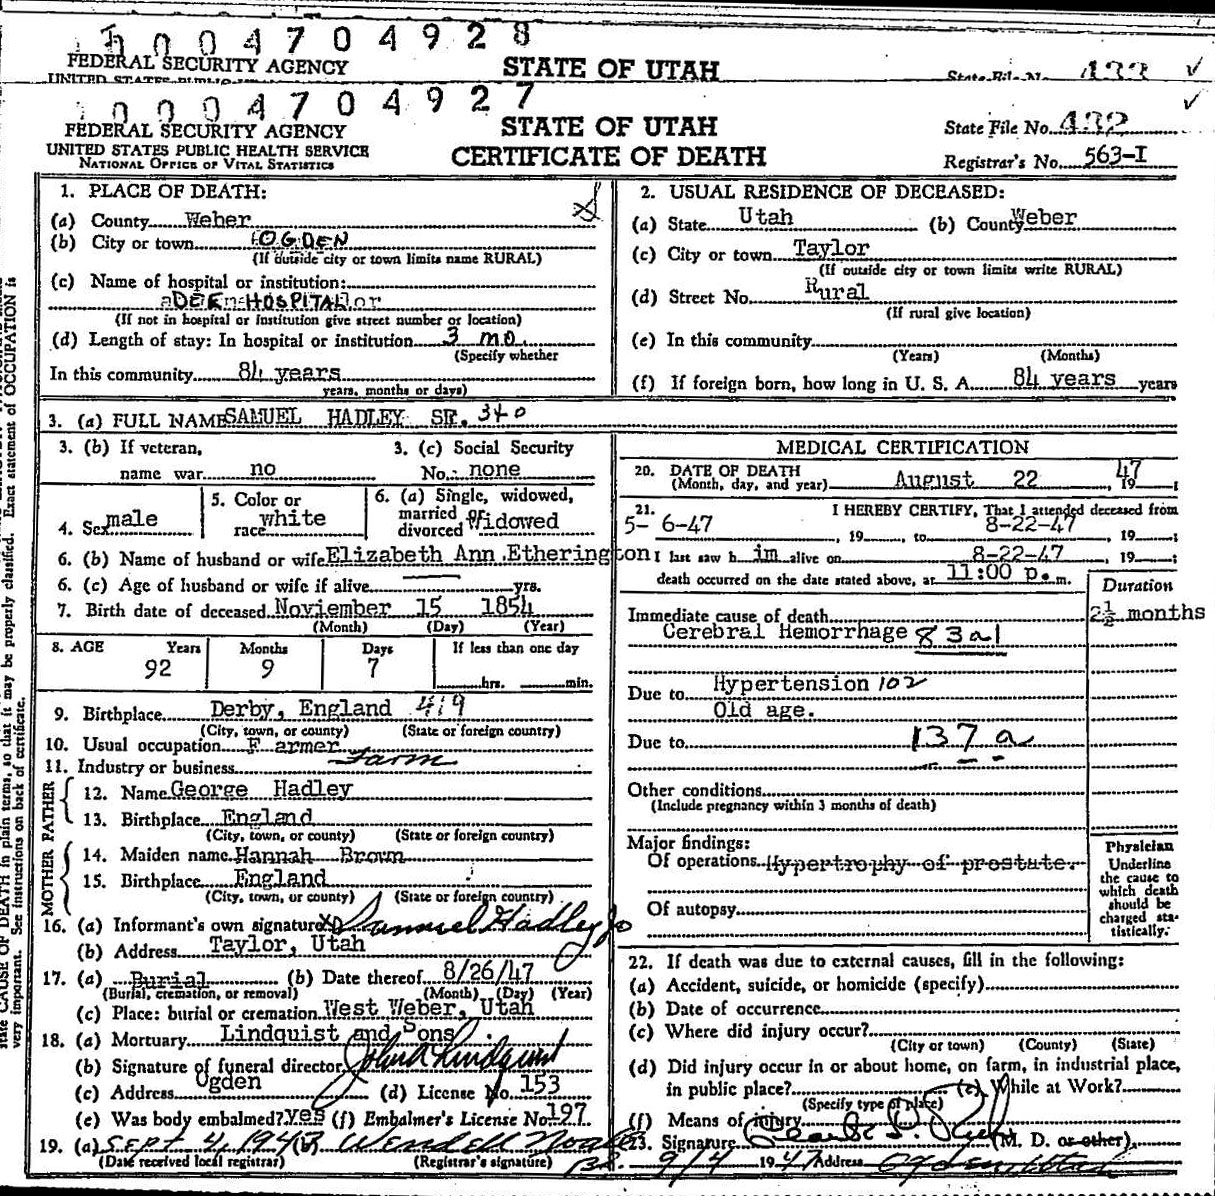 0004704928
FEDERAL SECURITY AGENCY STATE OF UTAH
0004704927
FEDERAL SECURITY AGENCY STATE OF UTAH State File No. 432
UNITED STATES PUBLIC HEALTH SERVICE CERTIFICATE OF DEATH
NATIONAL OFFICE OF VITAL STATISTICS Registrar's No. 563-I
1. PLACE OF DEATH:
(a) County Weber
(b) City or town OGDEN
(If outside city or town limits name RURAL)
(c) Name of hospital or institution:
DEE HOSPITAL
(If not in hospital or institution give street number or location)
(d) Length of stay: In hospital or institution 3 mo.
(Specify whether
In this community 84 years
years, months or days)
2. USUAL RESIDENCE OF DECEASED:
(a) State Utah (b) County Weber
(c) City or town Taylor
(If outside city or town limits write RURAL)
(d) Street No. Rural
(If rural give location)
(e) In this community
(Years) (Months)
(f) If foreign born, how long in U. S. A. 84 years years
3. (a) FULL NAME SAMUEL HADLEY SR. 340
3. (b) If veteran, 3. (c) Social Security
name war no No.: none
4. Sex male
5. Color or
race white
6. (a) Single, widowed,
married or
divorced Widowed
6. (b) Name of husband or wife Elizabeth Ann Etherington
6. (c) Age of husband or wife if alive yrs.
7. Birth date of deceased November 15 1854
(Month) (Day) (Year)
8. AGE Years Months Days If less than one day
92 9 7 hrs. min.
9. Birthplace Derby, England 419
(City, town, or county) (State or foreign country)
10. Usual occupation F armer
11. Industry or business Farm
FATHER
12. Name George Hadley
13. Birthplace England
(City, town, or county) (State or foreign country)
MOTHER
14. Maiden name Hannah Brown
15. Birthplace England
(City, town, or county) (State or foreign country)
16. (a) Informant's own signature Samuel Hadley Jr
(b) Address Taylor, Utah
17. (a) Burial (b) Date thereof 8/26/47
(Burial, cremation, or removal) (Month) (Day) (Year)
(c) Place: burial or cremation West Weber, Utah
18. (a) Mortuary Lindquist and Sons
(b) Signature of funeral director John A Lindquist
(c) Address Ogden (d) License No. 153
(e) Was body embalmed? yes (f) Embalmer's License No. 197
19. (a) SEPT 4, 1947 (b) Wendell
(Date received local registrar) (Registrar's signature)
MEDICAL CERTIFICATION
20. DATE OF DEATH
(Month, day, and year) August 22, 1947;
21. I HEREBY CERTIFY, That I attended deceased from
5- 6-47, 19 , to 8-22-47, 19 ;
I last saw h im alive on 8-22-47, 19 ;
death occurred on the date stated above, at 11:00 p. m.
Duration
Immediate cause of death 2½ months
Cerebral Hemorrhage 83a1
Due to Hypertension 102
Old age.
Due to 137 a
Other conditions
(Include pregnancy within 3 months of death)
Major findings:
Of operations Hypertrophy of prostate.
Of autopsy
Physician
Underline
the cause to
which death
should be
charged sta-
tistically.
22. If death was due to external causes, fill in the following:
(a) Accident, suicide, or homicide (specify)
(b) Date of occurrence
(c) Where did injury occur?
(City or town) (County) (State)
(d) Did injury occur in or about home, on farm, in industrial place,
in public place? (e) While at Work?
(Specify type of place)
(f) Means of injury
23. Signature (M. D. or other)
9/4 1947 Address Ogden, Utah